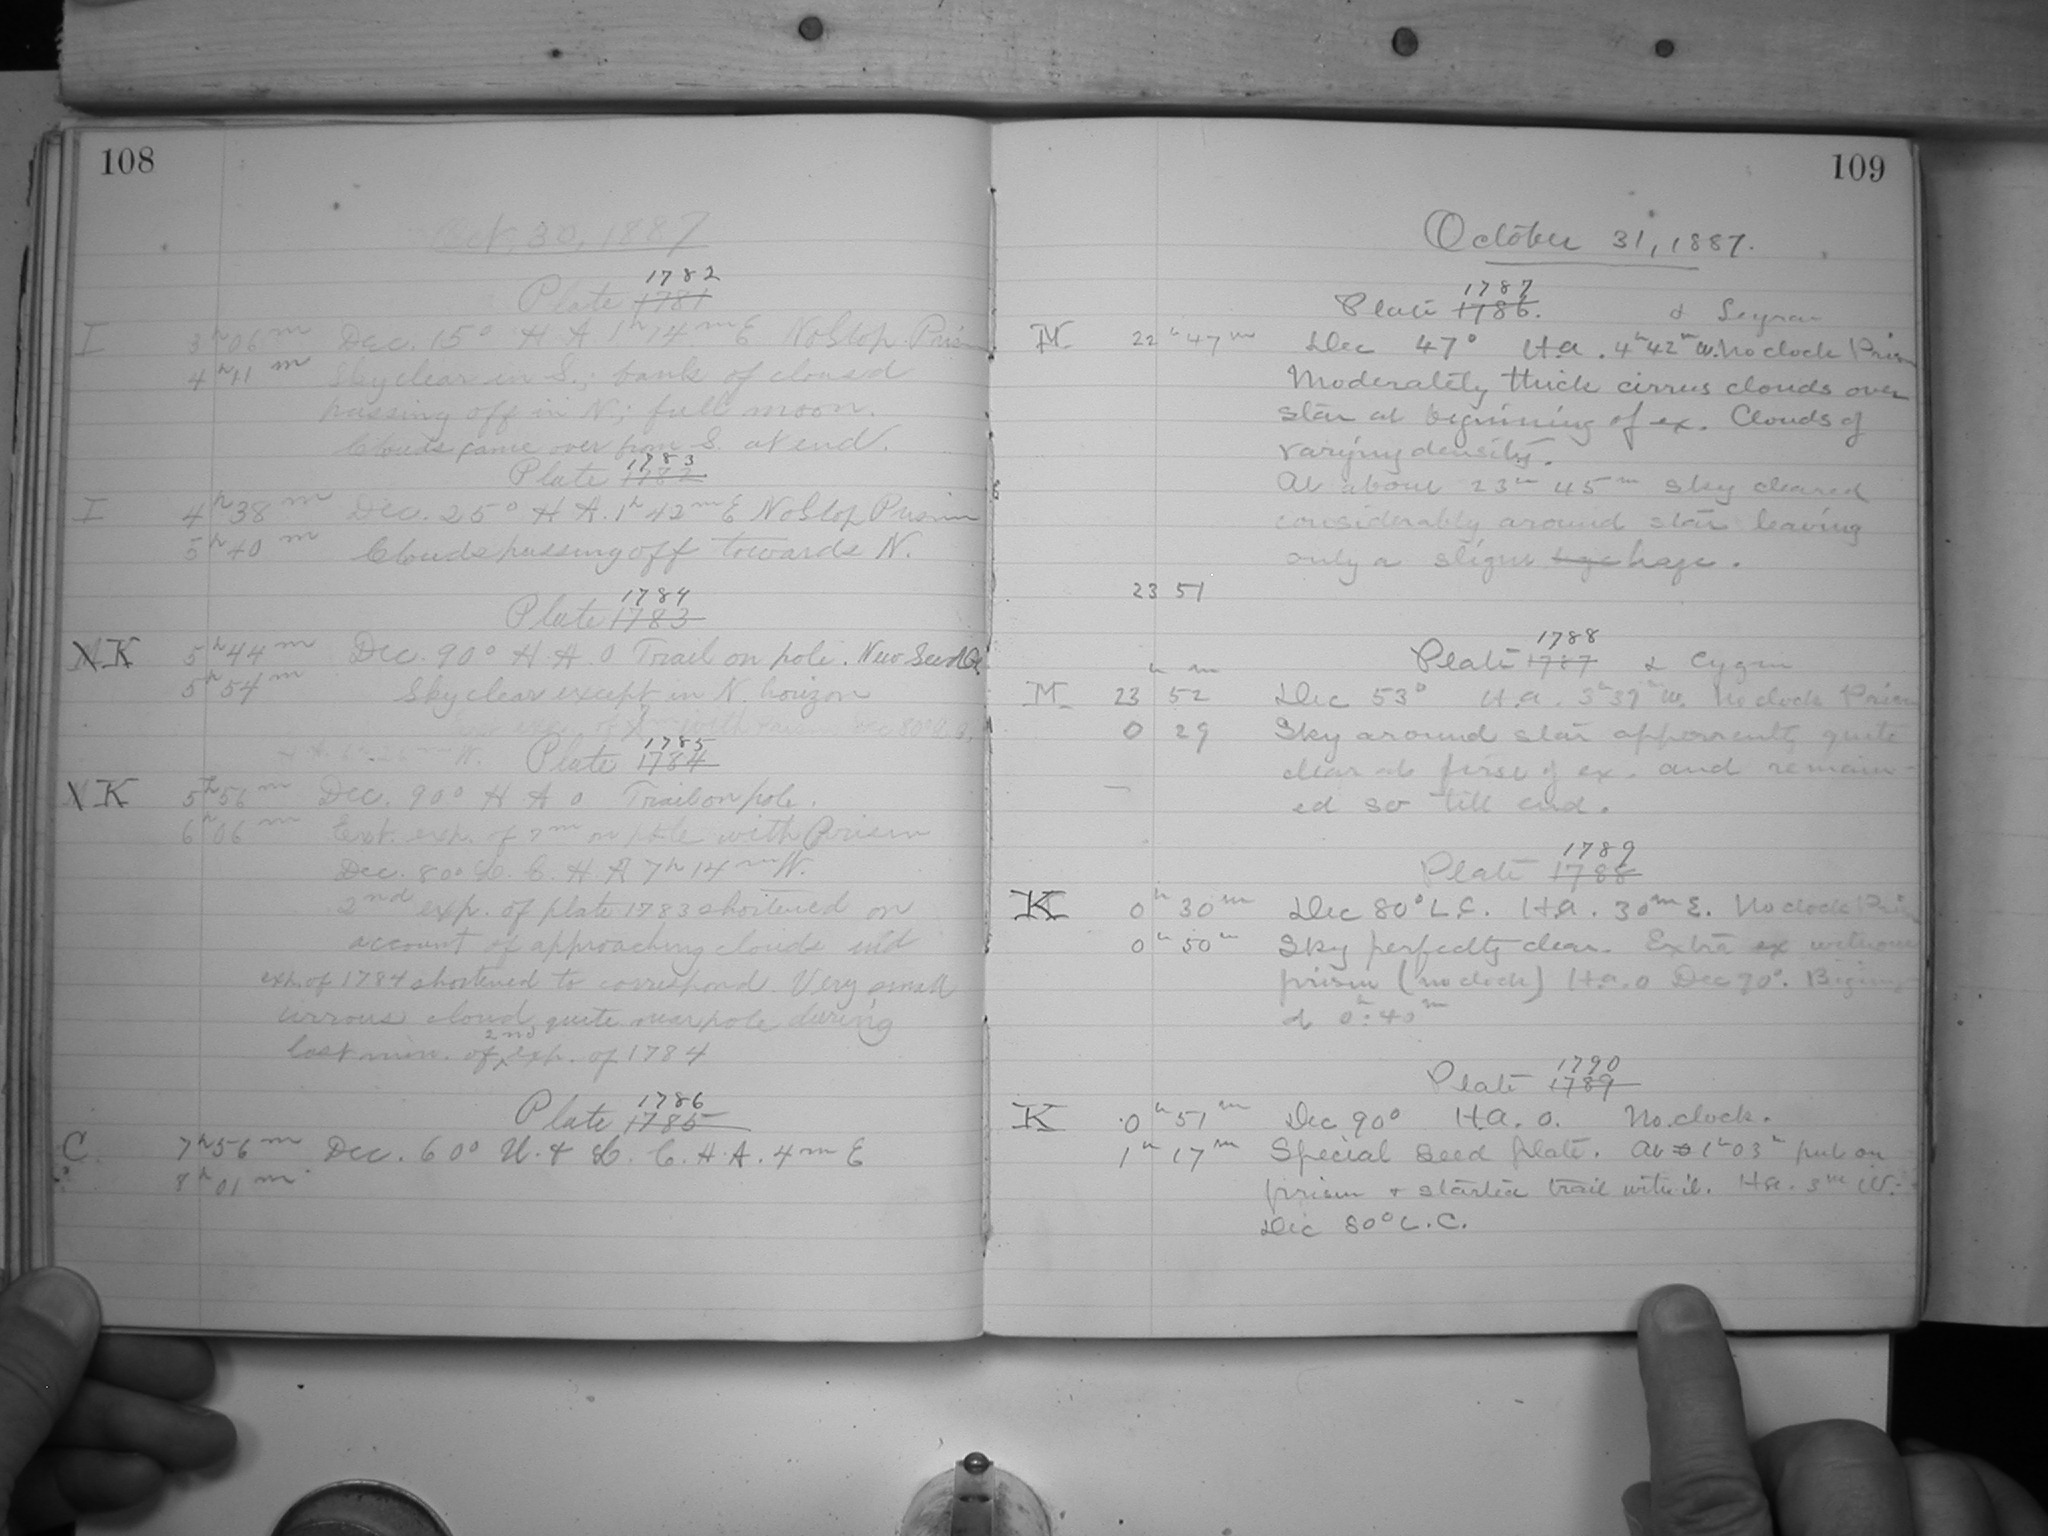 108
Oct. 30, 1887
1782
Plate 1781
I 3h06m Dec. 15° H A. 1h14m E No Stop Prism
4h11m Sky clear in S.; bank of cloud
passing off in N; full moon.
Clouds came over from S. at end.
1783
Plate 1782
I 4h38m Dec. 25° H A. 1h42m E No Stop Prism
5h40m Clouds passing off towards N.
1784
Plate 1783
K 5h44m Dec. 90° H A. 0 Trail on pole. New Seed
5h54m Sky clear except in N. horizon
exp. of with Prism Dec 80°
1785
H A. W. Plate 1784
K 5h56m Dec. 90° H A 0 Trail on pole.
6h06m Ext. exp. of on pole with Prism
Dec. 80° L. C. H. A 7h14m W.
2nd exp. of plate 1783 shortened on
account of approaching clouds and
exp. of 1784 shortened to correspond. Very small
cirrous cloud quite near pole during
last min. of 2nd exp. of 1784
1786
Plate 1785
C. 7h56m Dec. 60° U. & L. C. H. A. 4m E
8h01m
109
October 31, 1887.
1787
Plate 1786. α
M 22h47m Dec 47° H.a. 4h42m W. No clock Prism
Moderately thick cirrus clouds over
star at beginning of ex. Clouds of
varying density.
At about 23h 45m sky cleared
considerably around star leaving
only a slight haze.
23 51
1788
Plate 1787 Cygni
h m
M 23 52 Dec 53° H.a. 3h37m W. No clock Prism
0 29 Sky around star apparently quite
clear at first of ex. and remain-
ed so till end.
1789
Plate 1788
K 0h 30m Dec 80° L.C. H.a. 30m E. No clock Prism
0h 50m Sky perfectly clear. Extra ex without
prism (no clock) H.a. 0 Dec 90°. Begin
at 0h:40m
1790
Plate 1789
K 0h 51m Dec 90° H.a. 0. No clock.
1h 17m Special Seed plate. At 1h 03m put on
prism & started trail with it. H.a. 3m W.
Dec 80° L.C.